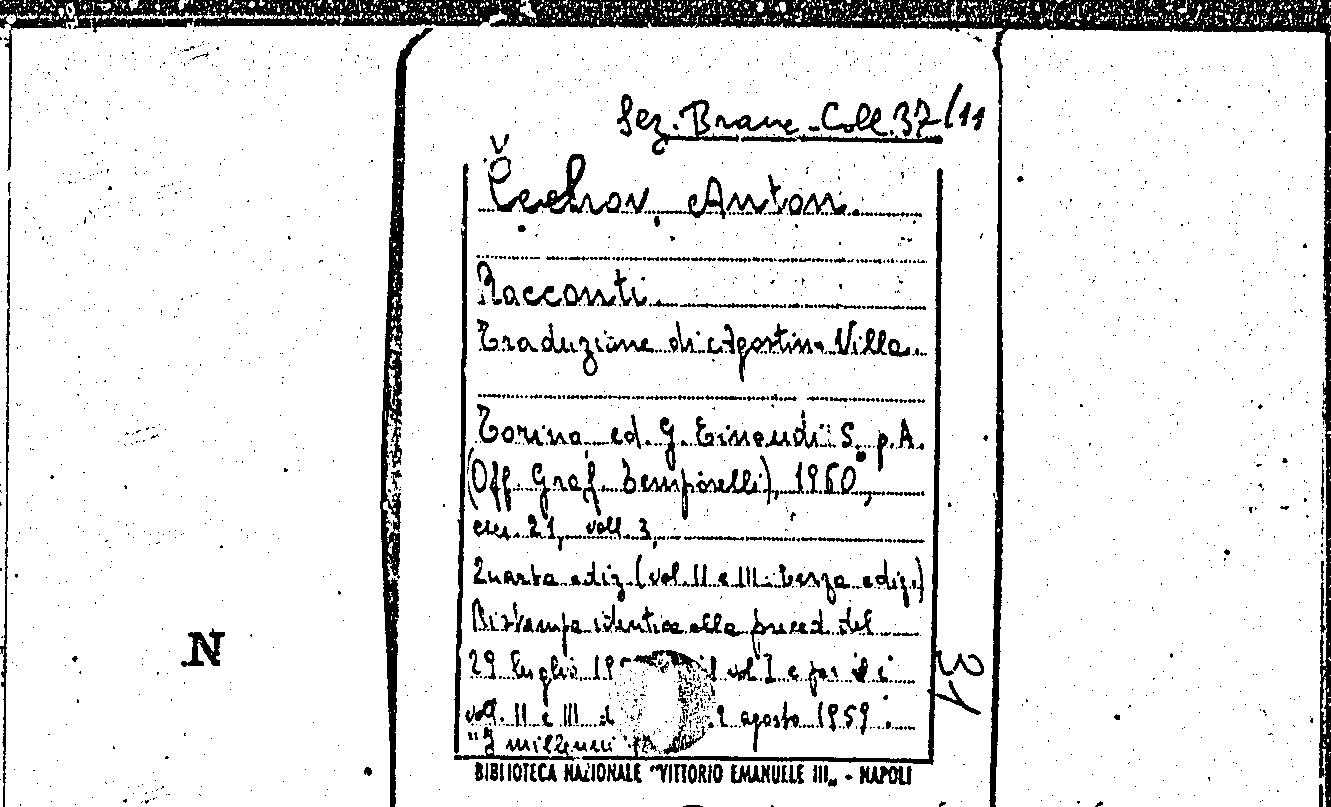 Sez. Branc. Coll. 37/11
Čechov, Anton.
Racconti.
Traduzione di Agostino Villa.
Torino, ed. G. Einaudi S. p. A.
(Off. Graf. Temporelli), 1960,
cm. 21, voll. 3,
Quarta ediz. (vol. II e III. Terza ediz.)
Ristampa identica alla preced. del
29 luglio vol I e per i
voll. II e III agosto 1959.
"I millenni
N
31
BIBLIOTECA NAZIONALE "VITTORIO EMANUELE III„ - NAPOLI